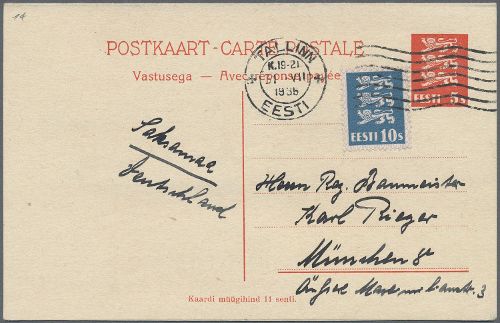 14
POSTKAART - CARTE POSTALE
Vastusega — Avec réponse payée
TALLINN
K.19-21
VII
1936
EESTI
EESTI 5s
EESTI 10s
Saksamaa
Deutschland
Herrn Reg. Baumeister
Karl Rieger
München 8
3
Kaardi müügihind 11 senti.